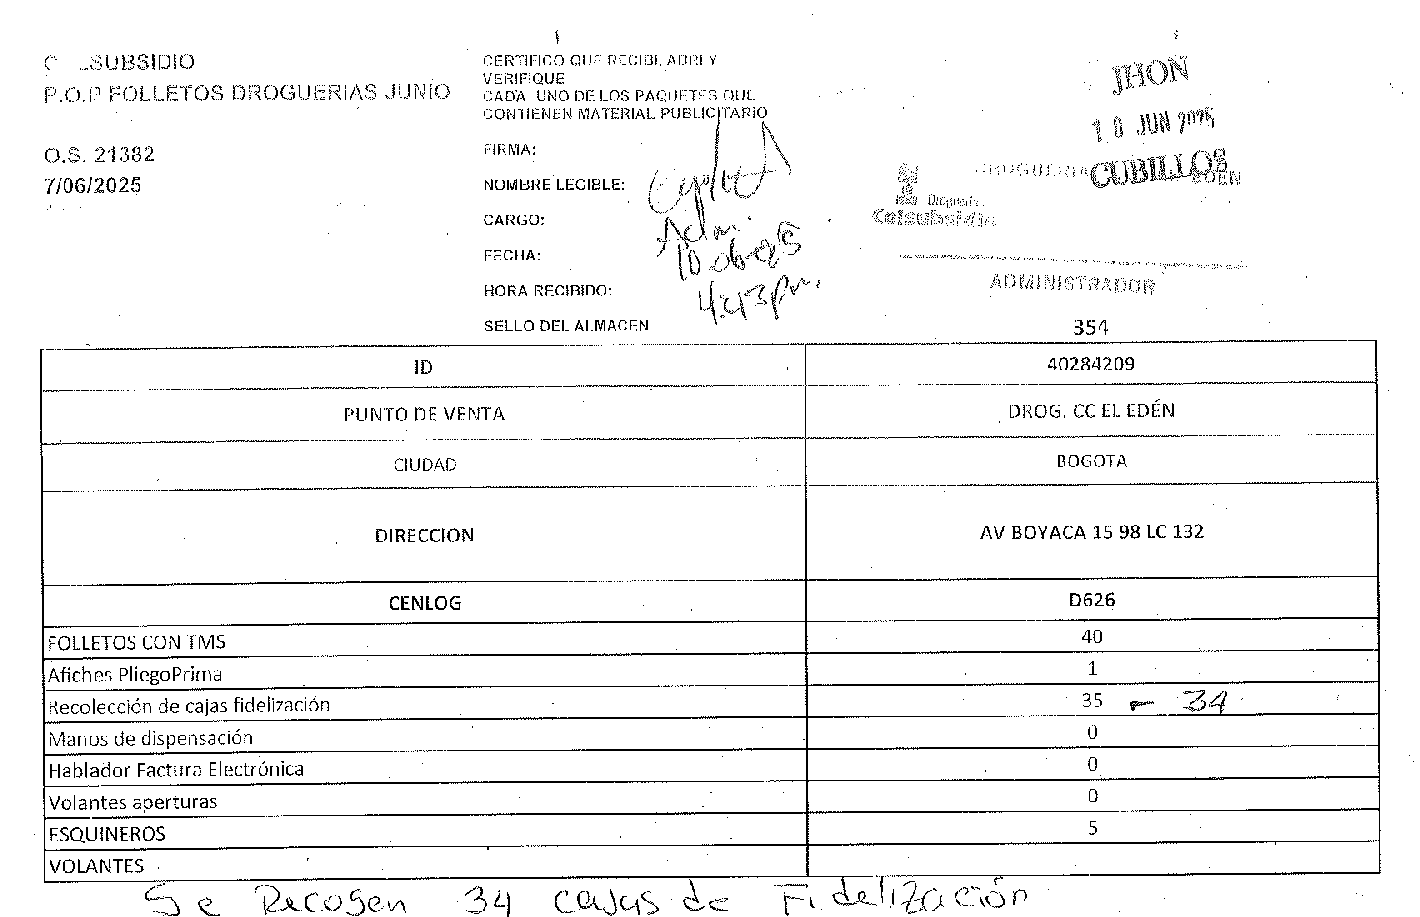 C LSUBSIDIO
P.O.P FOLLETOS DROGUERIAS JUNIO
O.S. 21382
7/06/2025
CERTIFICO QUE RECIBI, ABRI Y
VERIFIQUE
CADA UNO DE LOS PAQUETES QUE
CONTIENEN MATERIAL PUBLICITARIO
FIRMA:
NOMBRE LEGIBLE:
CARGO: Adm.
FECHA: 10 06 25
HORA RECIBIDO: 4:43 pm.
SELLO DEL ALMACEN
JHON
10 JUN 2025
CUBILLOS
DROGUERIA
EDEN
Droguería
Colsubsidio
ADMINISTRADOR
354
ID 40284209
PUNTO DE VENTA DROG. CC EL EDÉN
CIUDAD BOGOTA
DIRECCION AV BOYACA 15 98 LC 132
CENLOG D626
FOLLETOS CON TMS 40
Afiches PliegoPrima 1
Recolección de cajas fidelización 35 - 34
Manos de dispensación 0
Hablador Factura Electrónica 0
Volantes aperturas 0
ESQUINEROS 5
VOLANTES
Se Recogen 34 cajas de Fidelización